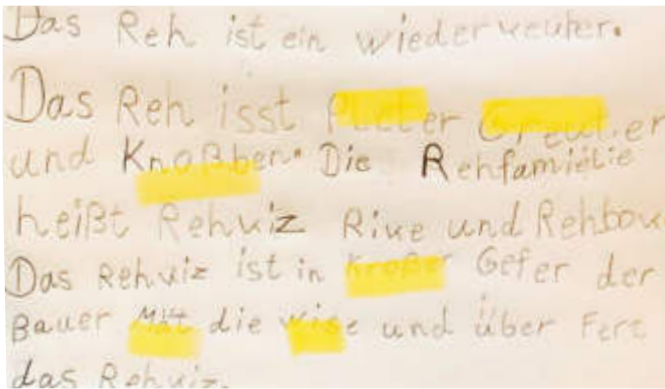 Das Reh ist ein wiederkeuher.
Das Reh isst Pletter Greuter
und Knoßben. Die Rehfamielie
heißt Rehkiz Rike und Rehbok
Das Rehkiz ist in kroßer Gefer der
Bauer Mät die wise und über Fert
das Rehkiz.